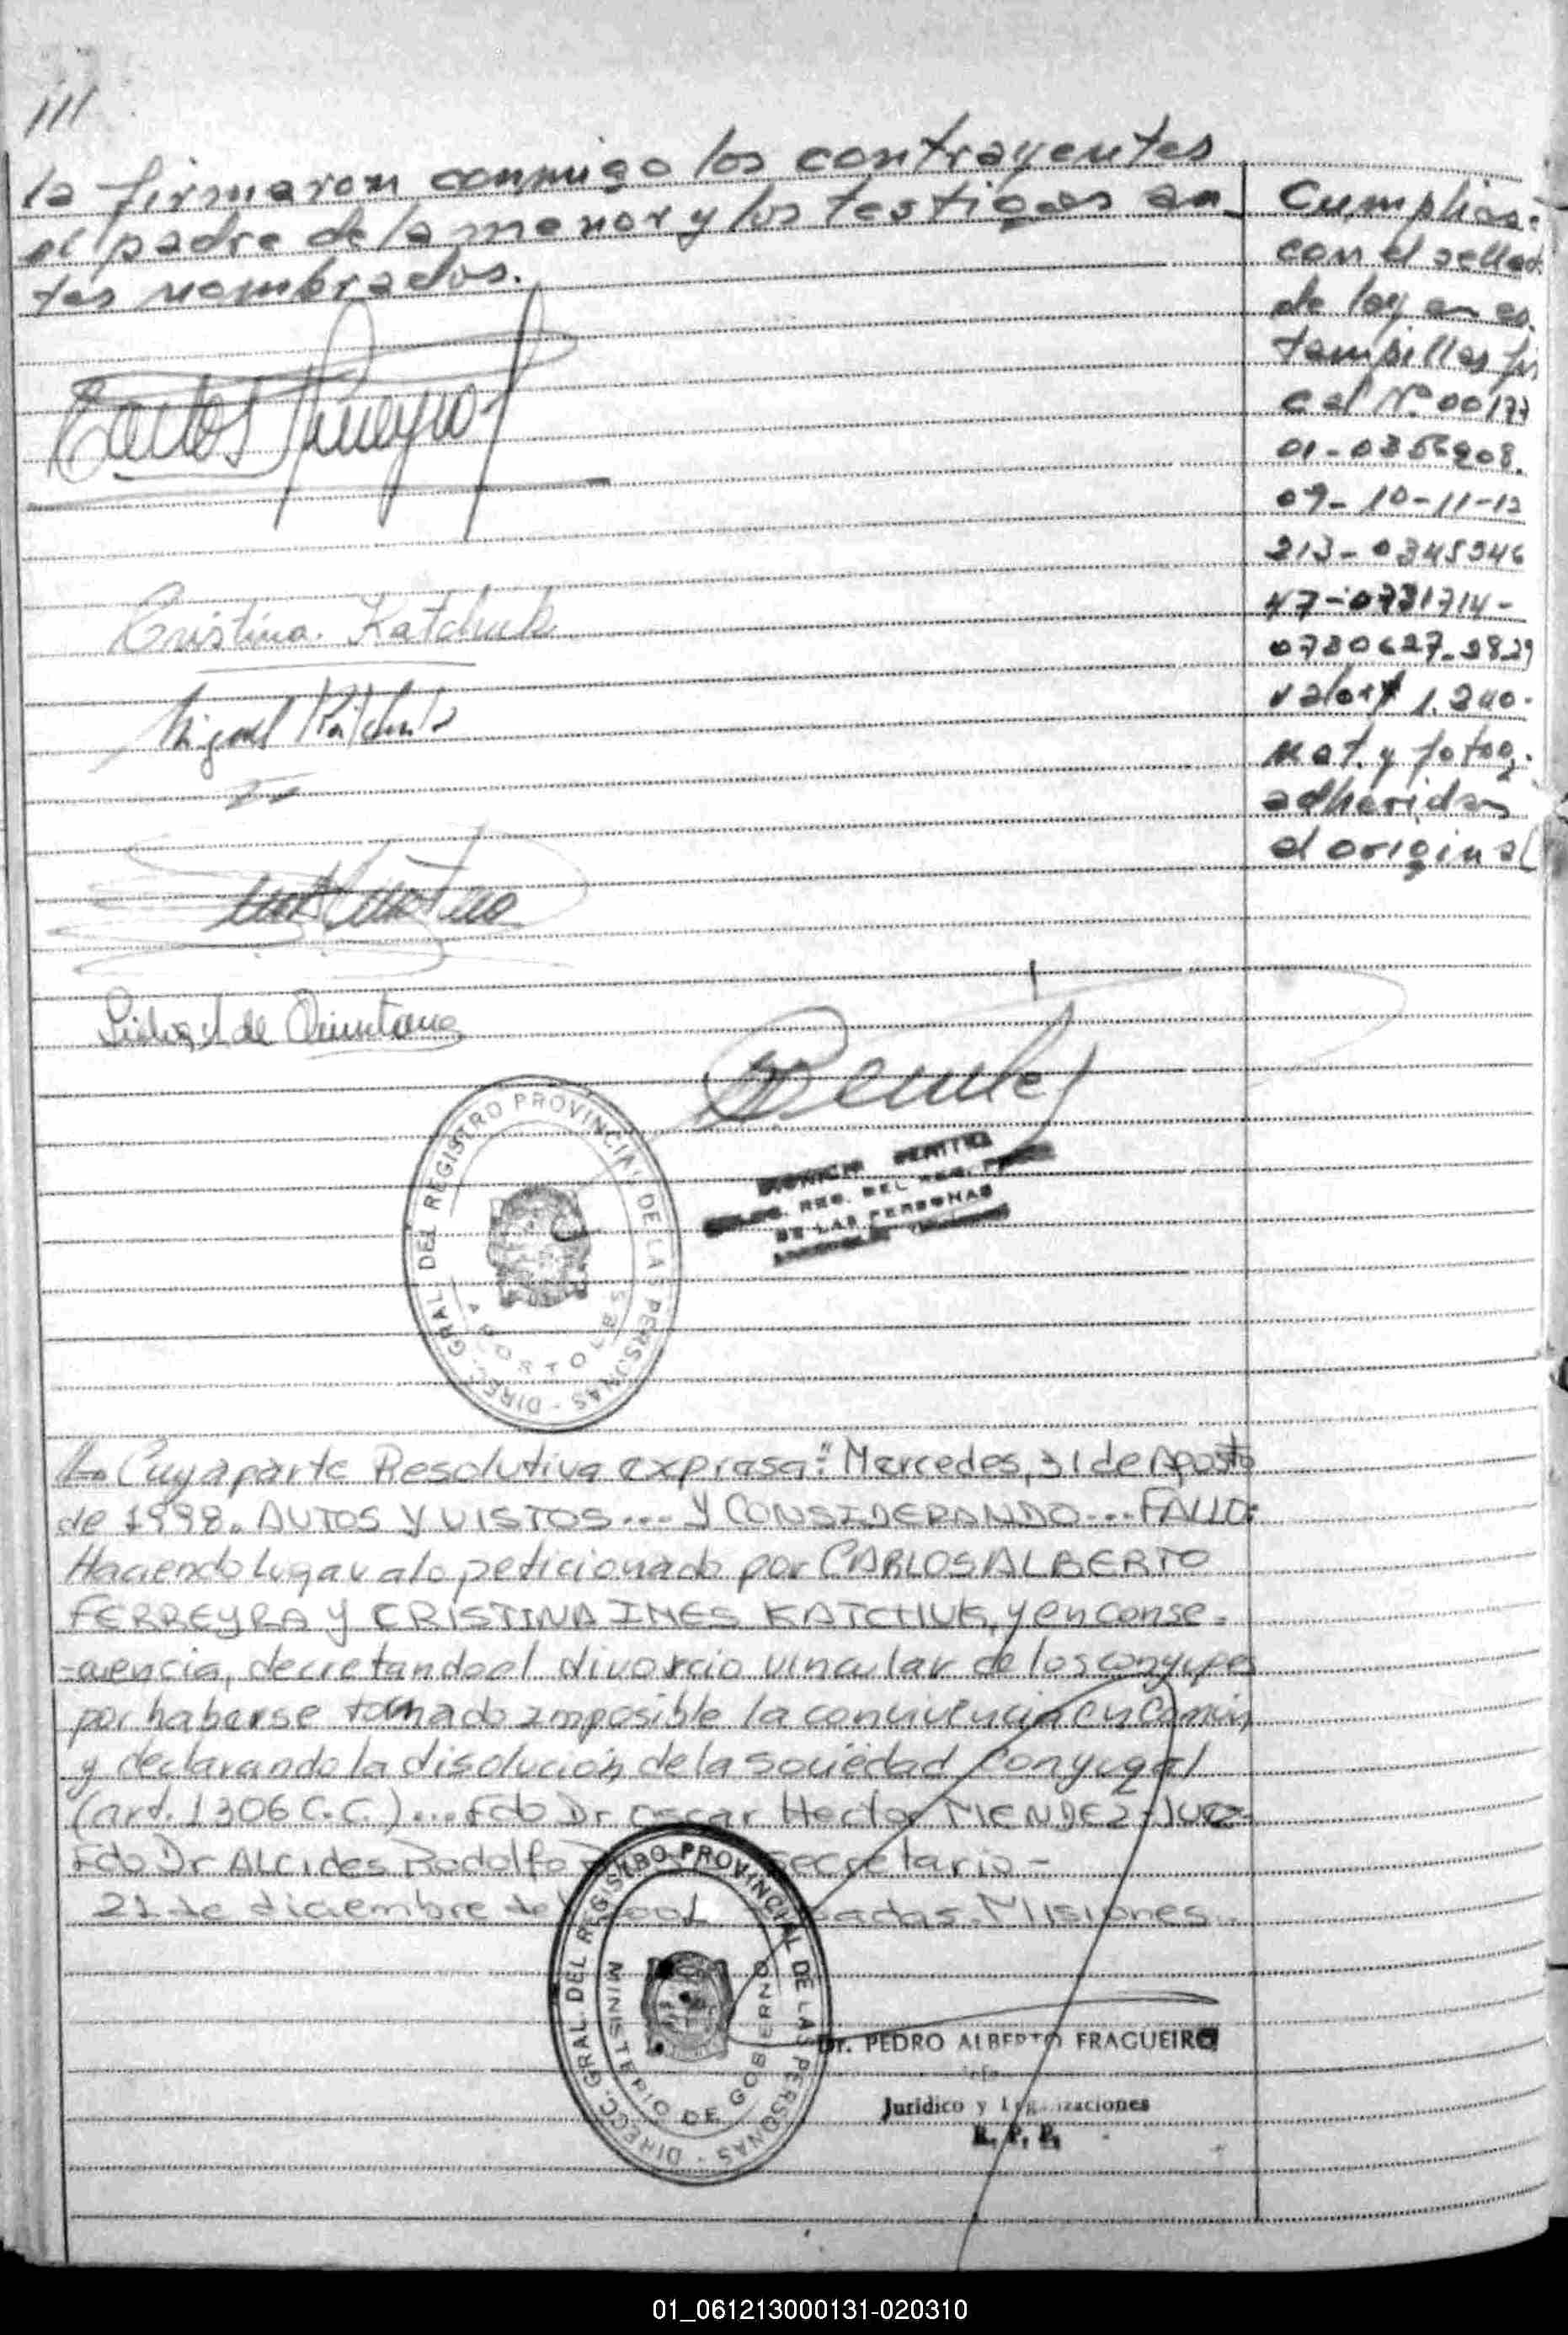 ///
la firmaron conmigo los contrayentes
el padre de la menor y los testigos an-
tes nombrados.
Cumplióse
con el sellad.
de ley en es.
tampillas fis
cal Nº 00177
01-0356908.
09-10-11-12
213-0345946
47-0731714-
0730627-2829
valor $ 1.240.
Mat. y fotog.
adheridas
al original
Carlos Ferreyra
Cristina Katchuk
Miguel Katchuk
de Quintana
Benítez
DIREC. GRAL. DEL REGISTRO PROVINCIAL DE LAS PERSONAS
APOSTOLES
BENITEZ
DEL REG. P
DE LAS PERSONAS
//- Cuya parte Resolutiva expresa: "Mercedes, 31 de Agosto
de 1998. AUTOS Y VISTOS... Y CONSIDERANDO... FALLO:
Haciendo lugar a lo peticionado por CARLOS ALBERTO
FERREYRA Y CRISTINA INES KATCHUK, y en conse-
-cuencia, decretando el divorcio vincular de los conyuges
por haberse tornado imposible la convivencia en Común
y declarando la disolución de la sociedad conyugal
(art. 1306 C.C.)... Fdo Dr Oscar Hector MENDEZ-JUEZ-
Fdo Dr Alcides Rodolfo secretario-
21 de diciembre del 2001 Posadas. Misiones.
DIRECC. GRAL. DEL REGISTRO PROVINCIAL DE LAS PERSONAS
MINISTERIO DE GOBIERNO
Dr. PEDRO ALBERTO FRAGUEIRO
Jefe
Jurídico y Legalizaciones
R. P. P.
01_061213000131-020310